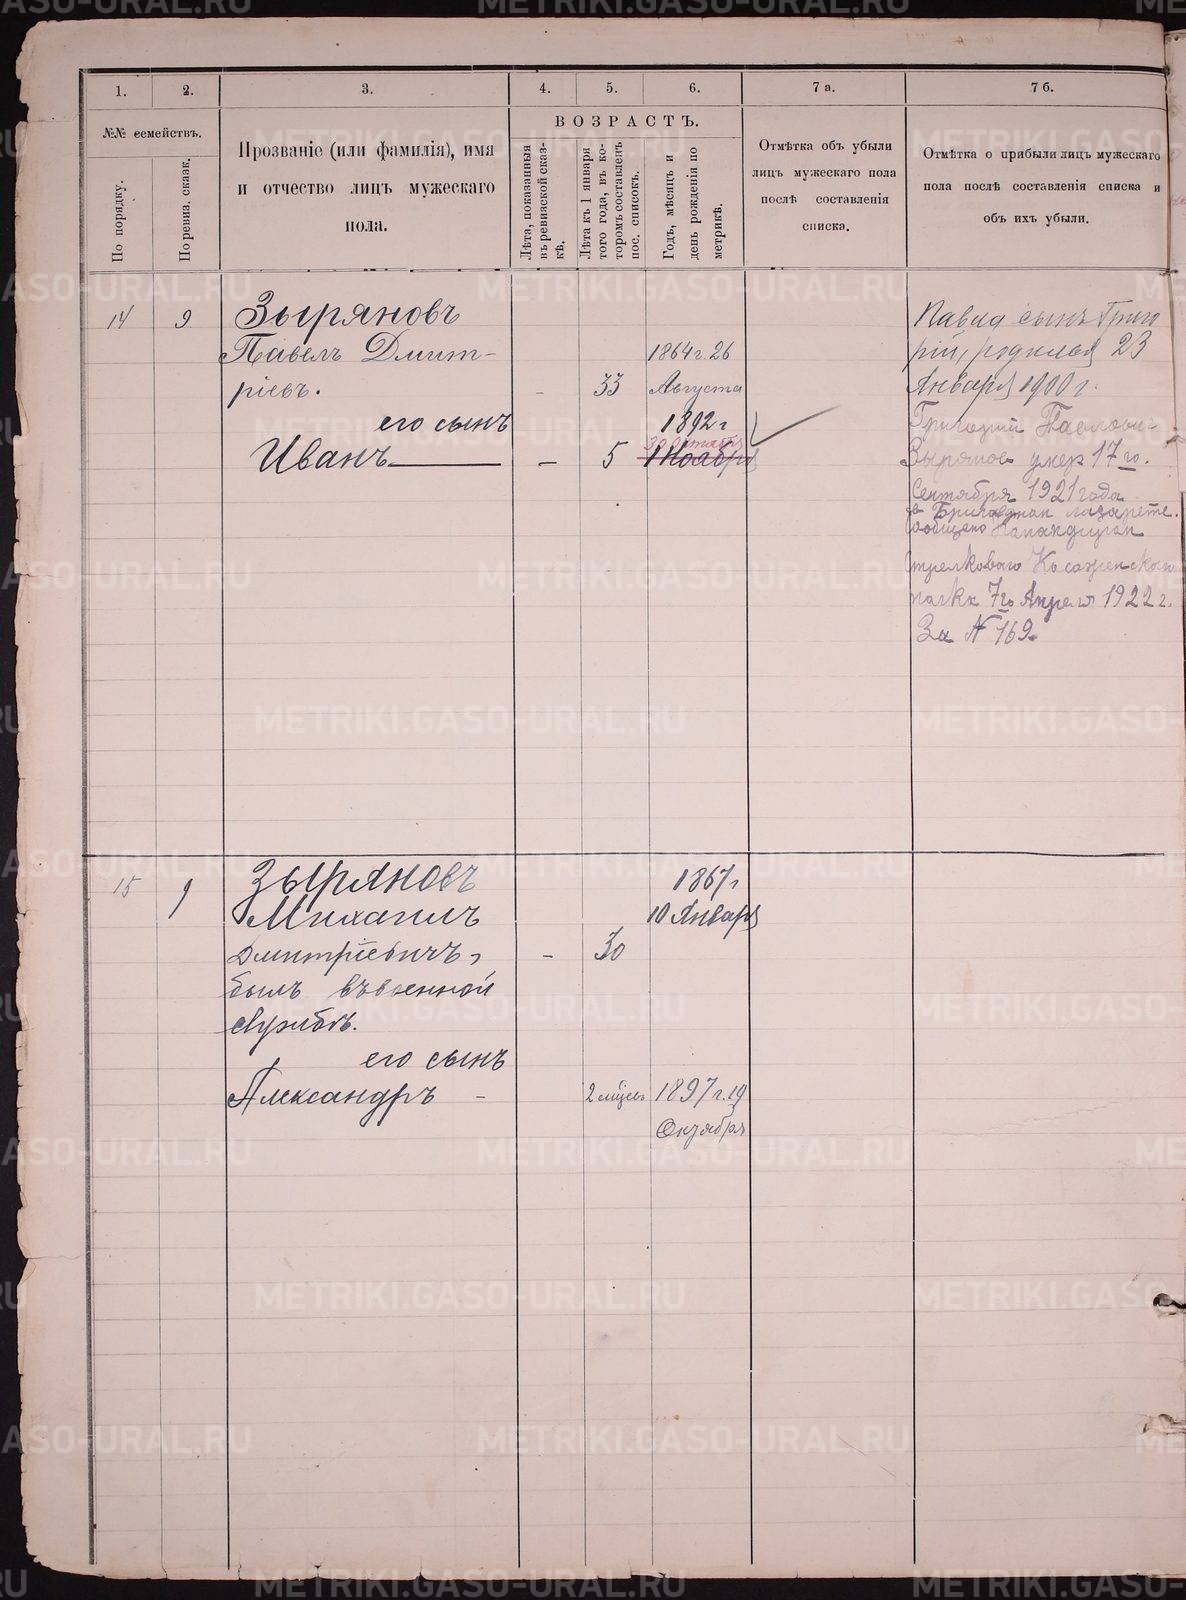 1.
2.
3.
4.
5.
6.
7 а.
7 б.
№№ семействъ.
По порядку.
По ревиз. сказк.
Прозваніе (или фамилія), имя
и отчество лицъ мужескаго
пола.
ВОЗРАСТЪ.
Лѣта, показанныя
въ ревизской сказ-
кѣ.
Лѣта къ 1 января
того года, въ ко-
торомъ составленъ
пос. списокъ.
Годъ, мѣсяцъ и
день рожденія по
метрикѣ.
Отмѣтка объ убыли
лицъ мужескаго пола
послѣ составленія
списка.
Отмѣтка о прибыли лицъ мужескаго
пола послѣ составленія списка и
объ ихъ убыли.
14
9
Зыряновъ
Павелъ Дмит-
ріевъ.
-
33
1864 г. 26
Августа
его сынъ
Иванъ
-
5
1892 г
30 Октября
1 Ноября
Павла сынъ Григо
рій, родился 23
Января 1900 г.
Григорий Павлович
Зырянов умер 17го.
Сентября 1921 года
в лазарете.
Сообщено
Стрелковаго
полка 7го Апреля 1922 г.
За № 169.
15
9
Зыряновъ
Михаилъ
Дмитріевичъ,
былъ въ военной
службѣ.
-
30
1867 г
10 Января
его сынъ
Александръ -
2 мѣсяц
1897 г. 19
Октября
METRIKI.GASO-URAL.RU